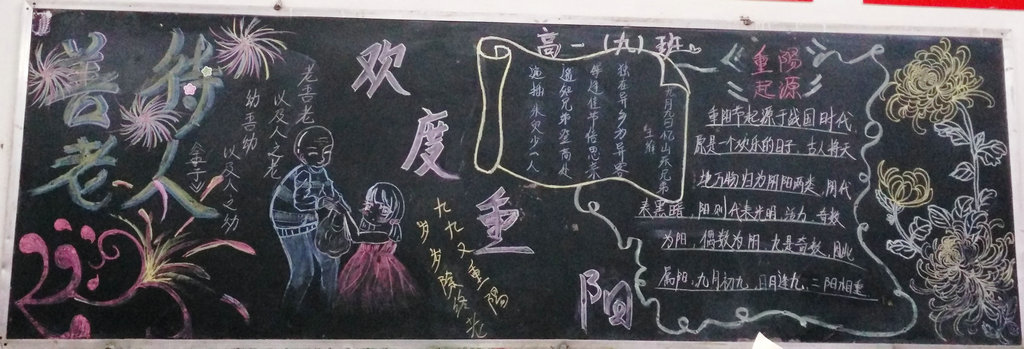 善待
老人
老吾老
以及人之老
幼吾幼
以及人之幼
《孟子》
欢度重阳
九九又重陽
岁岁陰陰老
高一(九)班
九月九日忆山东兄弟
王维
独在异乡为异客
每逢佳节倍思亲
遥知兄弟登高处
遍插茱萸少一人
《重陽
起源》
重阳节起源于战国时代,
原是一个欢乐的日子,古人将天
地万物归为阴阳两类,阴代
表黑暗,阳则代表光明、活力,奇数
为阳,偶数为阴,九是奇数,因此
属阳,九月初九,日月逢九,二阳相重